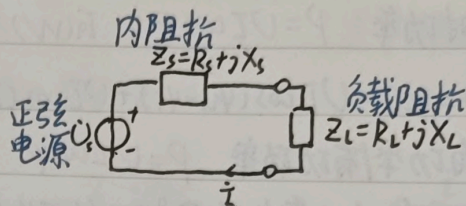 内阻抗
Zs=Rs+jXs
正弦
电源
U̇s
+
-
负载阻抗
ZL=RL+jXL
İ